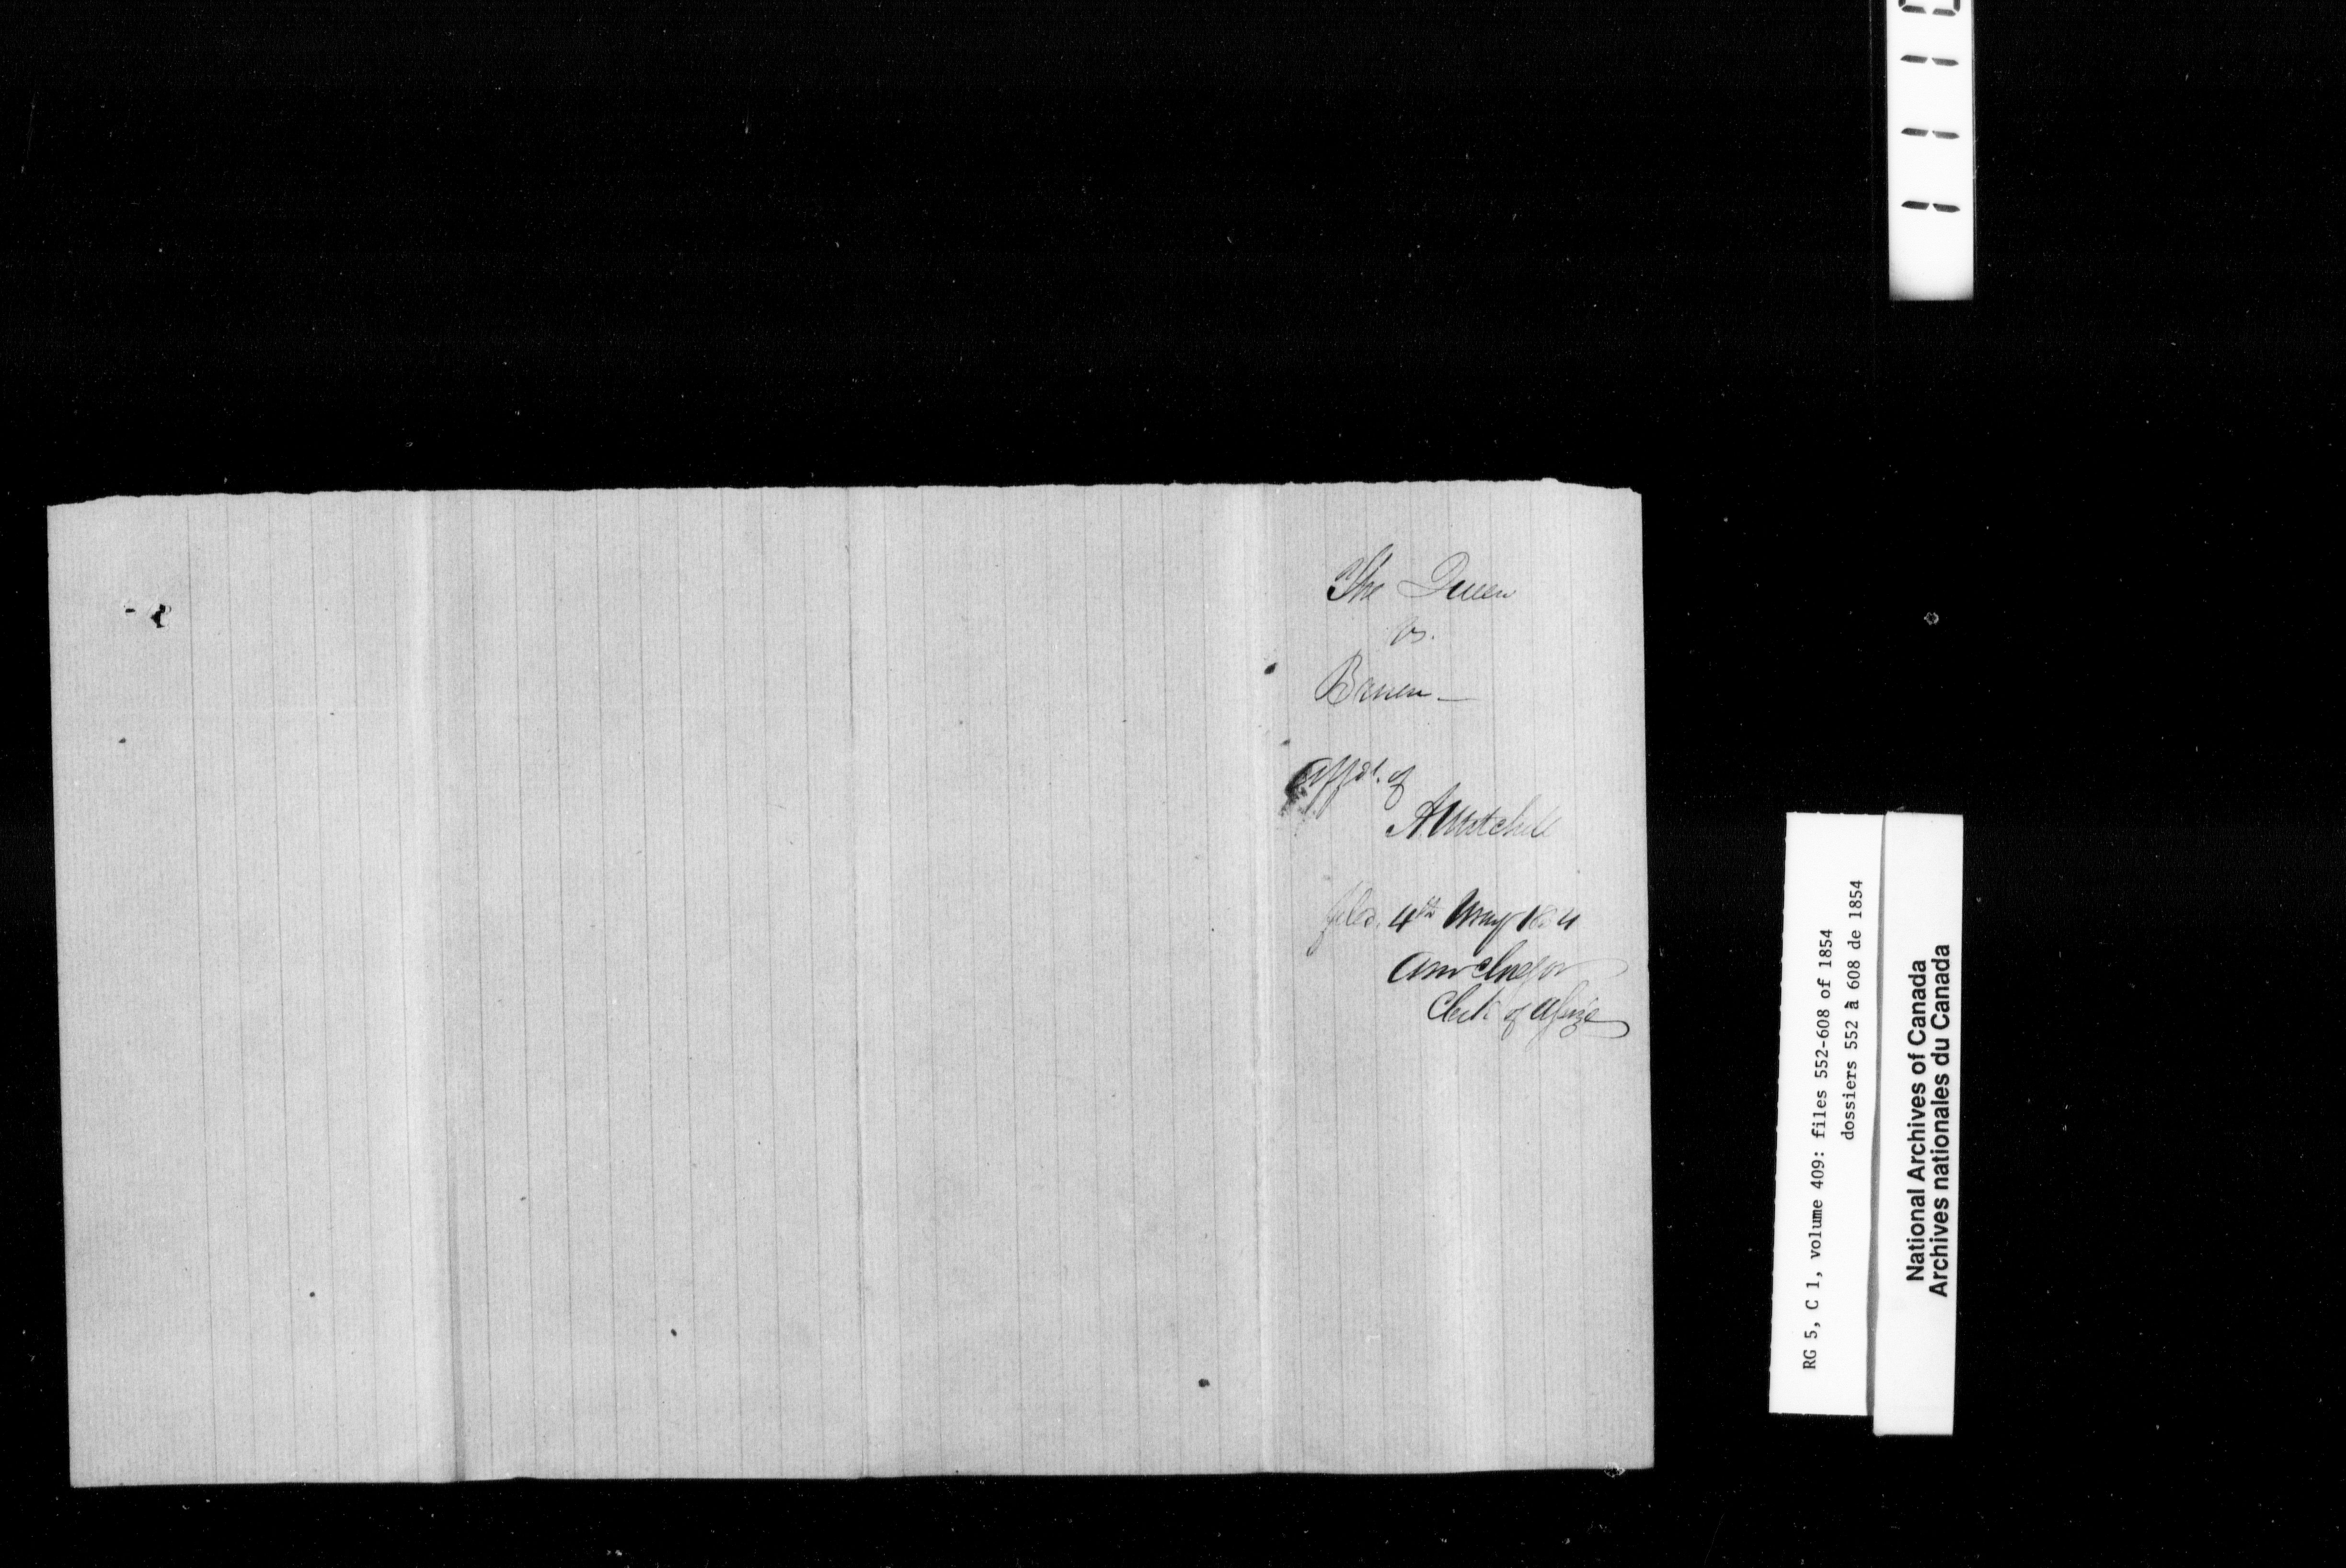 The Queen
vs.
Affdt. of
A Mitchell
filed. 4th May 1854
Clerk of Assize
RG 5, C 1, volume 409: files 552-608 of 1854
dossiers 552 à 608 de 1854
National Archives of Canada
Archives nationales du Canada